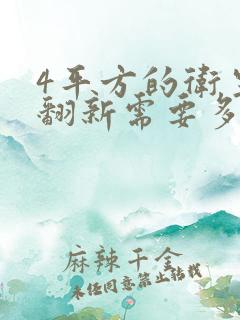 4平方的卫
翻新需要多
麻辣千金
未经同意禁止转载